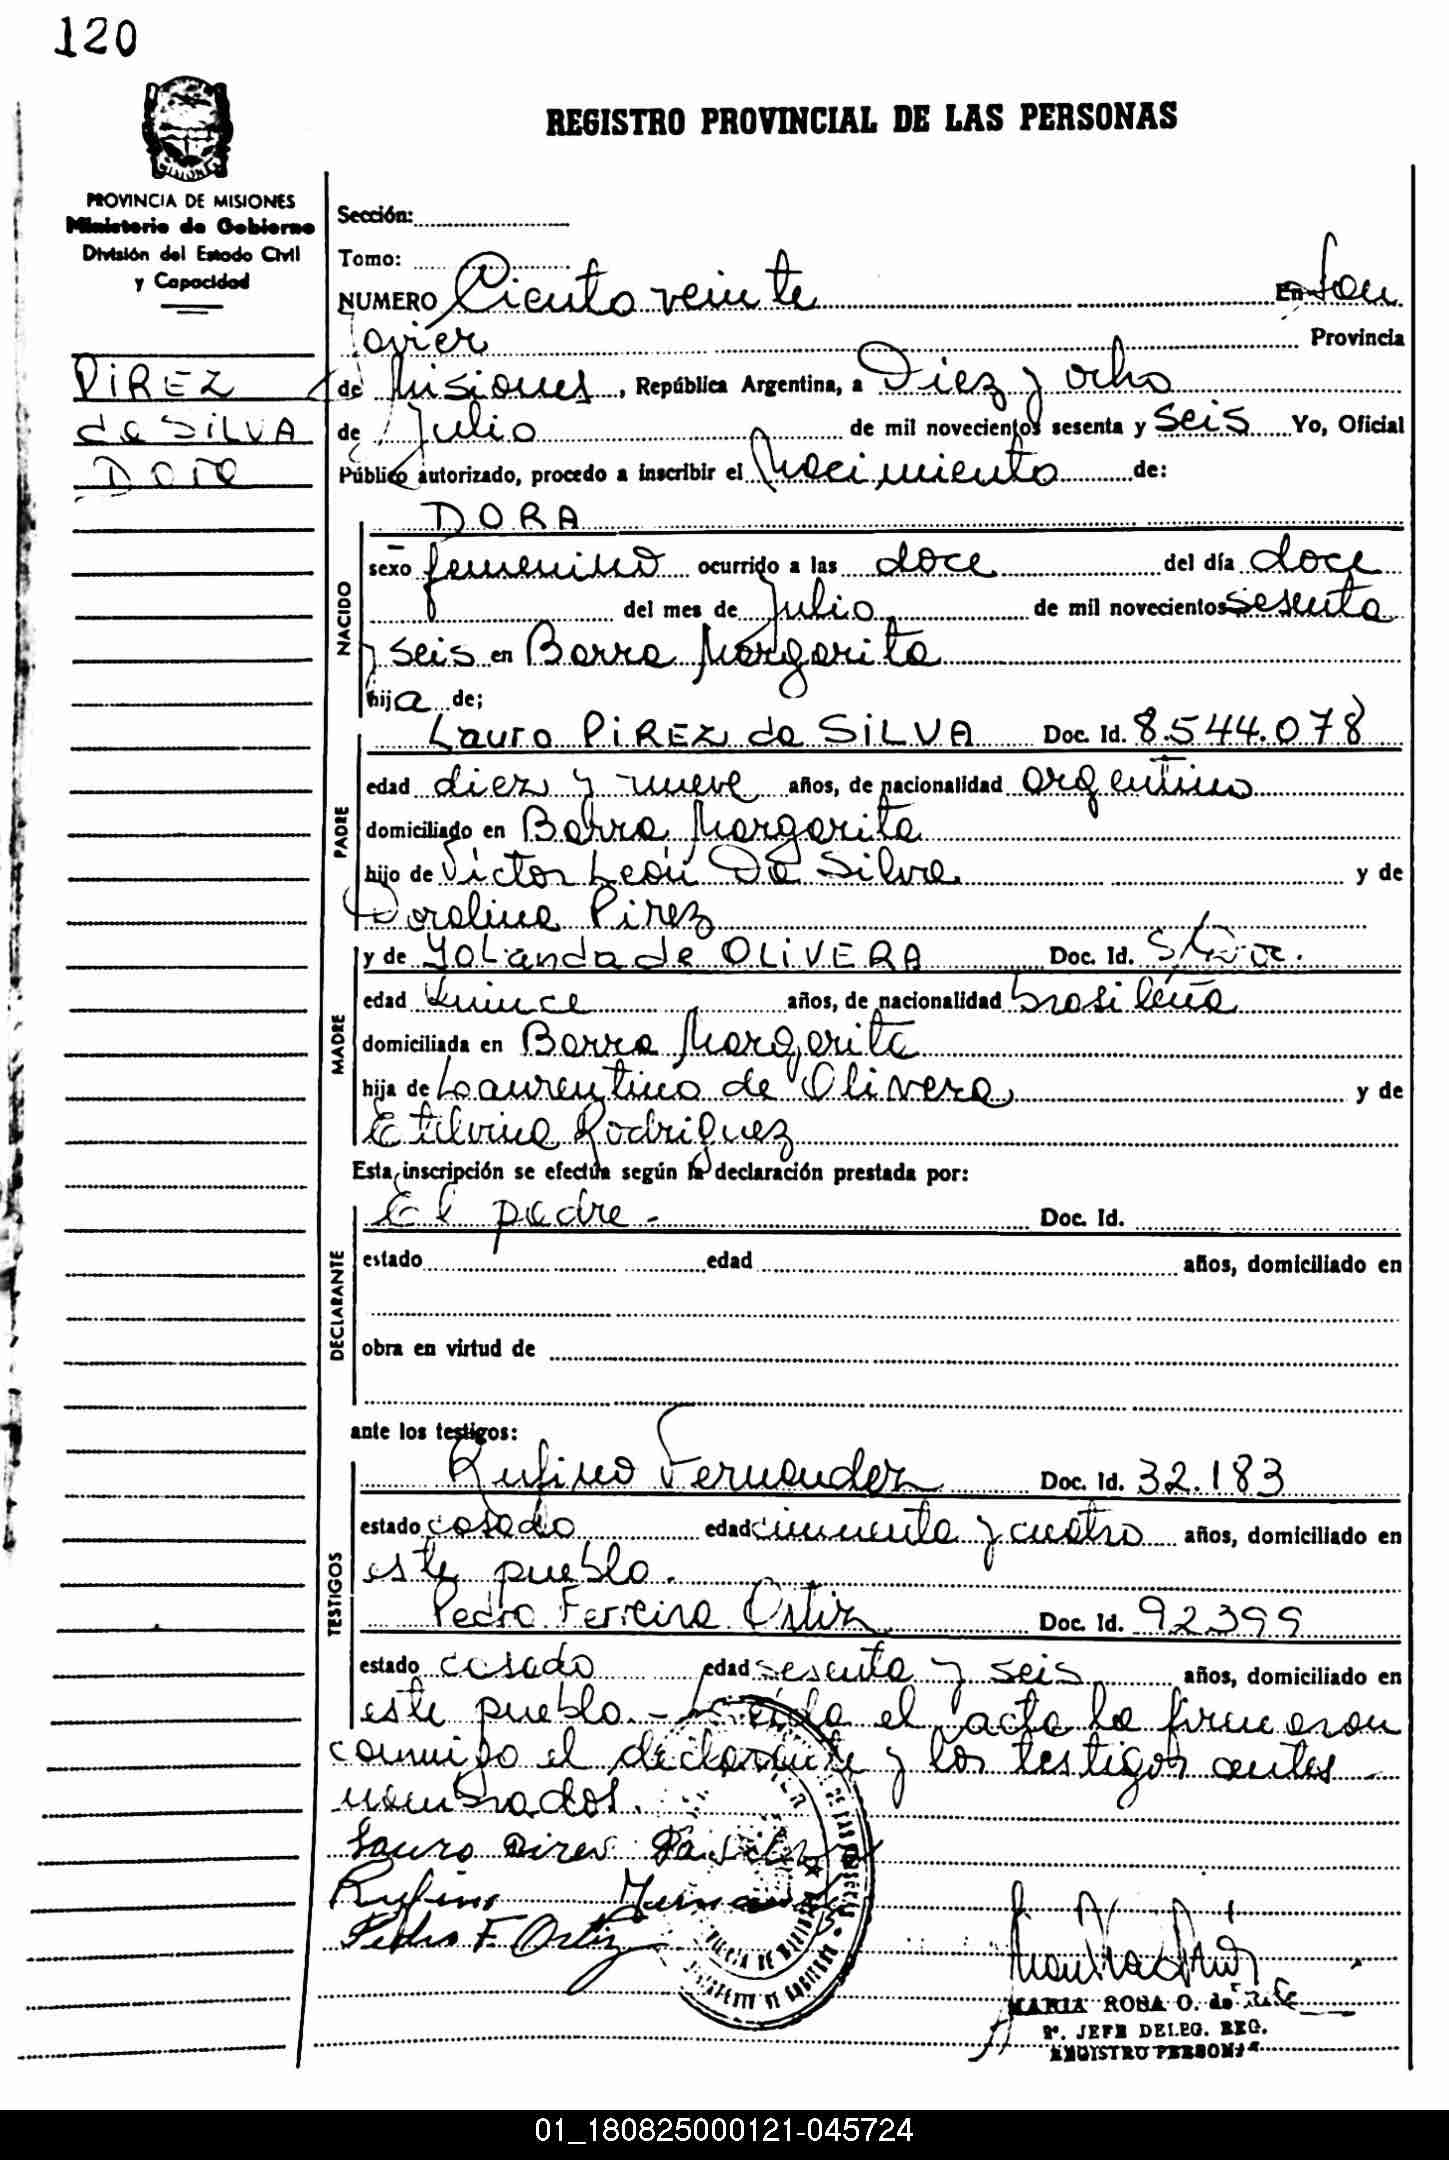 120
REGISTRO PROVINCIAL DE LAS PERSONAS
PROVINCIA DE MISIONES
Ministerio de Gobierno
División del Estado Civil
y Capacidad
PIREZ
da SILVA
Dora
Sección:
Tomo:
NUMERO Ciento veinte En San
Javier Provincia
de Misiones, República Argentina, a Diez y ocho
de Julio de mil novecientos sesenta y seis Yo, Oficial
Público autorizado, procedo a inscribir el Nacimiento de:
NACIDO
DORA
sexo femenino ocurrido a las doce del día doce
del mes de Julio de mil novecientos sesenta
y seis en Barra Margarita
hija de;
PADRE
Lauro PIREZ da SILVA Doc. Id. 8.544.078
edad diez y nueve años, de nacionalidad argentino
domiciliado en Barra Margarita
hijo de Victor León Da Silva y de
Doralina Pirez
MADRE
y de Yolanda de OLIVERA Doc. Id. S/Doc.
edad quince años, de nacionalidad brasileña
domiciliada en Barra Margarita
hija de Laurentino de Olivera y de
Etelvina Rodriguez
Esta inscripción se efectúa según la declaración prestada por:
DECLARANTE
El padre.- Doc. Id.
estado edad años, domiciliado en
obra en virtud de
ante los testigos:
TESTIGOS
Rufino Fernandez Doc. Id. 32.183
estado casado edad cincuenta y cuatro años, domiciliado en
este pueblo.
Pedro Ferreira Ortiz Doc. Id. 92399
estado casado edad sesenta y seis años, domiciliado en
este pueblo.- Leída el acta la firmaron
conmigo el declarante y los testigos antes
nombrados.
Lauro Pires Da Silva
Rufino Fernandez
Pedro F. Ortiz
MARIA ROSA O. de
2º. JEFE DELEG. REG.
REGISTRO PERSONAS
01_180825000121-045724